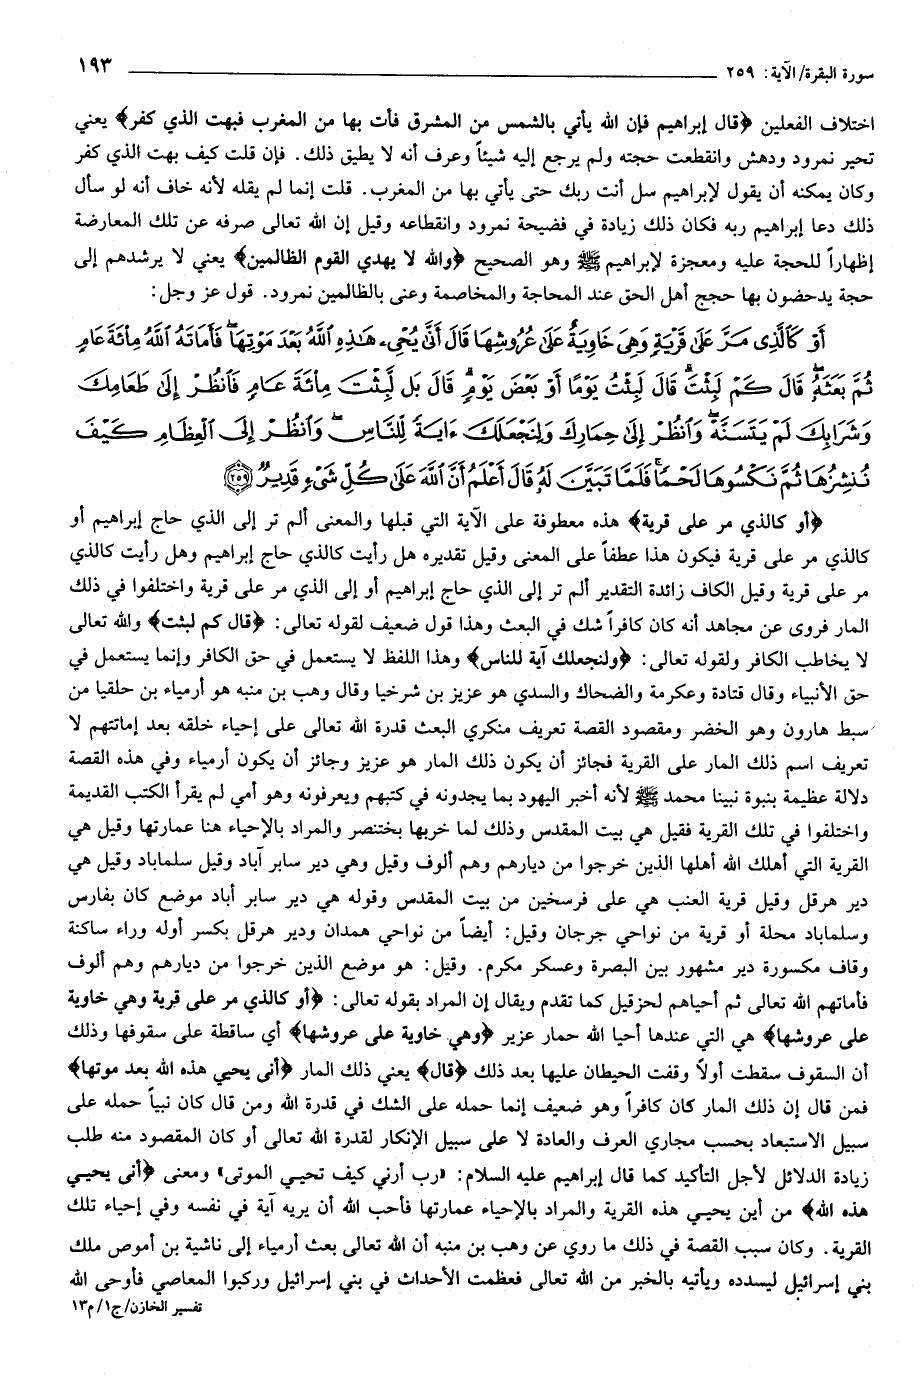 سورة البقرة/ الآية: ٢٥٩ ١٩٣
اختلاف الفعلين ﴿قال إبراهيم فإن الله يأتي بالشمس من المشرق فأت بها من المغرب فبهت الذي كفر﴾ يعني
تحير نمرود ودهش وانقطعت حجته ولم يرجع إليه شيئاً وعرف أنه لا يطيق ذلك. فإن قلت كيف بهت الذي كفر
وكان يمكنه أن يقول لإبراهيم سل أنت ربك حتى يأتي بها من المغرب. قلت إنما لم يقله لأنه خاف أنه لو سأل
ذلك دعا إبراهيم ربه فكان ذلك زيادة في فضيحة نمرود وانقطاعه وقيل إن الله تعالى صرفه عن تلك المعارضة
إظهاراً للحجة عليه ومعجزة لإبراهيم ﷺ وهو الصحيح ﴿والله لا يهدي القوم الظالمين﴾ يعني لا يرشدهم إلى
حجة يدحضون بها حجج أهل الحق عند المحاجة والمخاصمة وعنى بالظالمين نمرود. قول عز وجل:
أَوْ كَالَّذِى مَرَّ عَلَىٰ قَرْيَةٍ وَهِىَ خَاوِيَةٌ عَلَىٰ عُرُوشِهَا قَالَ أَنَّىٰ يُحْىِۦ هَٰذِهِ ٱللَّهُ بَعْدَ مَوْتِهَا ۖ فَأَمَاتَهُ ٱللَّهُ مِا۟ئَةَ عَامٍ
ثُمَّ بَعَثَهُۥ ۖ قَالَ كَمْ لَبِثْتَ ۖ قَالَ لَبِثْتُ يَوْمًا أَوْ بَعْضَ يَوْمٍ ۖ قَالَ بَل لَّبِثْتَ مِا۟ئَةَ عَامٍ فَٱنظُرْ إِلَىٰ طَعَامِكَ
وَشَرَابِكَ لَمْ يَتَسَنَّهْ ۖ وَٱنظُرْ إِلَىٰ حِمَارِكَ وَلِنَجْعَلَكَ ءَايَةً لِّلنَّاسِ ۖ وَٱنظُرْ إِلَى ٱلْعِظَامِ كَيْفَ
نُنشِزُهَا ثُمَّ نَكْسُوهَا لَحْمًا ۚ فَلَمَّا تَبَيَّنَ لَهُۥ قَالَ أَعْلَمُ أَنَّ ٱللَّهَ عَلَىٰ كُلِّ شَىْءٍ قَدِيرٌ ﴿٢٥٩﴾
﴿أو كالذي مر على قرية﴾ هذه معطوفة على الآية التي قبلها والمعنى ألم تر إلى الذي حاج إبراهيم أو
كالذي مر على قرية فيكون هذا عطفاً على المعنى وقيل تقديره هل رأيت كالذي حاج إبراهيم وهل رأيت كالذي
مر على قرية وقيل الكاف زائدة التقدير ألم تر إلى الذي حاج إبراهيم أو إلى الذي مر على قرية واختلفوا في ذلك
المار فروى عن مجاهد أنه كان كافراً شك في البعث وهذا قول ضعيف لقوله تعالى: ﴿قال كم لبثت﴾ والله تعالى
لا يخاطب الكافر ولقوله تعالى: ﴿ولنجعلك آية للناس﴾ وهذا اللفظ لا يستعمل في حق الكافر وإنما يستعمل في
حق الأنبياء وقال قتادة وعكرمة والضحاك والسدي هو عزيز بن شرخيا وقال وهب بن منبه هو أرمياء بن حلقيا من
سبط هارون وهو الخضر ومقصود القصة تعريف منكري البعث قدرة الله تعالى على إحياء خلقه بعد إماتتهم لا
تعريف اسم ذلك المار على القرية فجائز أن يكون ذلك المار هو عزيز وجائز أن يكون أرمياء وفي هذه القصة
دلالة عظيمة بنبوة نبينا محمد ﷺ لأنه أخبر اليهود بما يجدونه في كتبهم ويعرفونه وهو أمي لم يقرأ الكتب القديمة
واختلفوا في تلك القرية فقيل هي بيت المقدس وذلك لما خربها بختنصر والمراد بالإحياء هنا عمارتها وقيل هي
القرية التي أهلك الله أهلها الذين خرجوا من ديارهم وهم ألوف وقيل وهي دير سابر آباد وقيل سلماباد وقيل هي
دير هرقل وقيل قرية العنب هي على فرسخين من بيت المقدس وقوله هي دير سابر أباد موضع كان بفارس
وسلماباد محلة أو قرية من نواحي جرجان وقيل: أيضاً من نواحي همدان ودير هرقل بكسر أوله وراء ساكنة
وقاف مكسورة دير مشهور بين البصرة وعسكر مكرم. وقيل: هو موضع الذين خرجوا من ديارهم وهم ألوف
فأماتهم الله تعالى ثم أحياهم لحزقيل كما تقدم ويقال إن المراد بقوله تعالى: ﴿أو كالذي مر على قرية وهي خاوية
على عروشها﴾ هي التي عندها أحيا الله حمار عزير ﴿وهي خاوية على عروشها﴾ أي ساقطة على سقوفها وذلك
أن السقوف سقطت أولاً وقفت الحيطان عليها بعد ذلك ﴿قال﴾ يعني ذلك المار ﴿أنى يحيي هذه الله بعد موتها﴾
فمن قال إن ذلك المار كان كافراً وهو ضعيف إنما حمله على الشك في قدرة الله ومن قال كان نبياً حمله على
سبيل الاستبعاد بحسب مجاري العرف والعادة لا على سبيل الإنكار لقدرة الله تعالى أو كان المقصود منه طلب
زيادة الدلائل لأجل التأكيد كما قال إبراهيم عليه السلام: «رب أرني كيف تحيي الموتى» ومعنى ﴿أنى يحيي
هذه الله﴾ من أين يحيي هذه القرية والمراد بالإحياء عمارتها فأحب الله أن يريه آية في نفسه وفي إحياء تلك
القرية. وكان سبب القصة في ذلك ما روي عن وهب بن منبه أن الله تعالى بعث أرمياء إلى ناشية بن أموص ملك
بني إسرائيل ليسدده ويأتيه بالخبر من الله تعالى فعظمت الأحداث في بني إسرائيل وركبوا المعاصي فأوحى الله
تفسير الخازن/ ج١/ م١٣